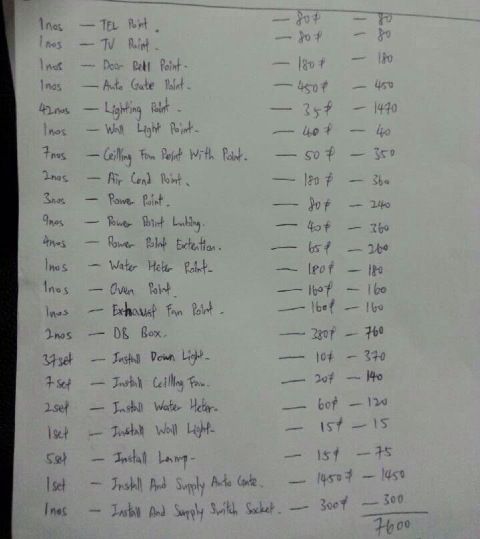 1nos — TEL Point. — 80/ — 80
1nos — TV Point. — 80/ — 80
1nos — Door Bell Point. — 180/ — 180
1nos — Auto Gate Point. — 450/ — 450
42nos — Lighting Point. — 35/ — 1470
1nos — Wall Light Point. — 40/ — 40
7nos — Ceilling Fan Point With Point. — 50/ — 350
2nos — Air Cond Point. — 180/ — 360
3nos — Power Point. — 80/ — 240
9nos — Power Point Linking. — 40/ — 360
4nos — Power Point Extention. — 65/ — 260
1nos — Water Heter Point. — 180/ — 180
1nos — Oven Point. — 160/ — 160
1nos — Exhaust Fan Point. — 160/ — 160
2nos — DB Box. — 380/ — 760
37set — Install Down Light. — 10/ — 370
7set — Install Ceilling Fan. — 20/ — 140
2set — Install Water Heter. — 60/ — 120
1set — Install Wall Light. — 15/ — 15
5set — Install Lamp. — 15/ — 75
1set — Install And Supply Auto Gate. — 1450/ — 1450
1nos — Install And Supply Switch Socket. — 300/ — 300
7600